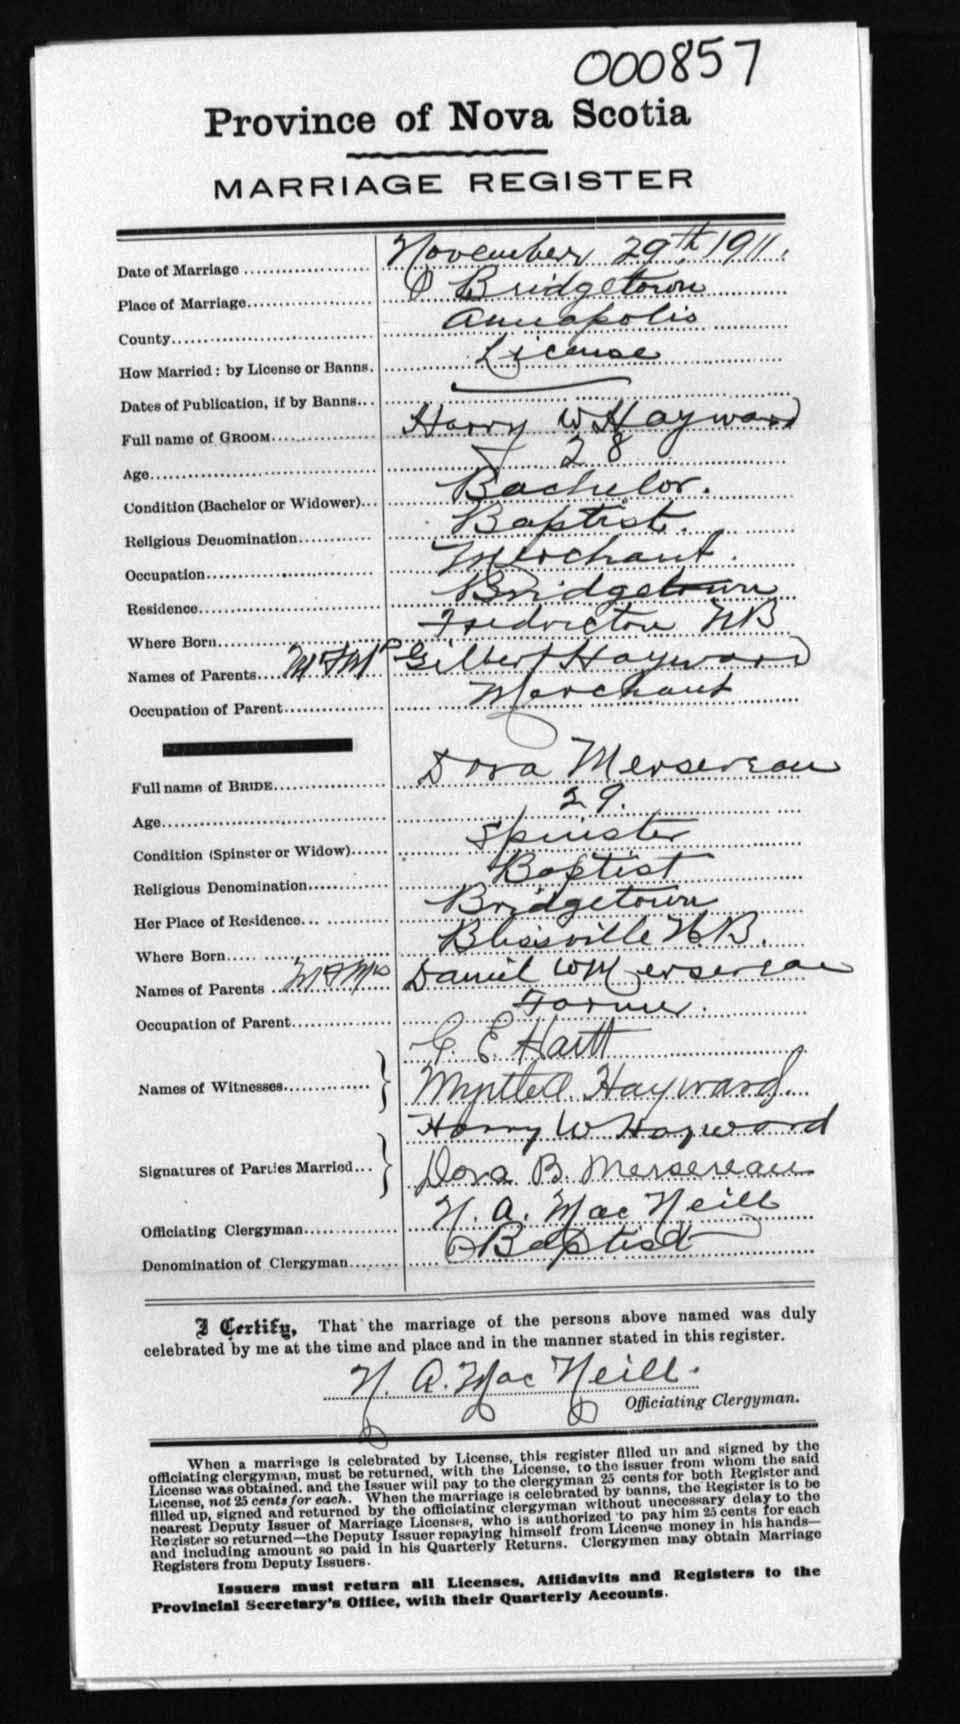 000857
Province of Nova Scotia
MARRIAGE REGISTER
Date of Marriage November 29th, 1911.
Place of Marriage Bridgetown
County Annapolis
How Married: by License or Banns. License
Dates of Publication, if by Banns
Full name of GROOM Harry W Hayward
Age 28
Condition (Bachelor or Widower) Bachelor.
Religious Denomination Baptist.
Occupation Merchant.
Residence Bridgetown
Where Born Fredricton NB
Names of Parents Gilbert Hayward
Occupation of Parent Merchant
Full name of BRIDE Dora Mersereau
Age 29.
Condition (Spinster or Widow) Spinster
Religious Denomination Baptist
Her Place of Residence Bridgetown
Where Born Blissville N.B.
Names of Parents Mr & Mrs Daniel W Mersereau
Occupation of Parent Farmer.
G. E. Hartt
Names of Witnesses Hayward.
Harry W Hayward
Signatures of Parties Married Dora B. Mersereau
Officiating Clergyman N. A. MacNeill
Denomination of Clergyman Baptist
I Certify, That the marriage of the persons above named was duly
celebrated by me at the time and place and in the manner stated in this register.
N. A. MacNeill.
Officiating Clergyman.
When a marriage is celebrated by License, this register filled up and signed by the
officiating clergyman, must be returned, with the License, to the issuer from whom the said
License was obtained, and the Issuer will pay to the clergyman 25 cents for both Register and
License, not 25 cents for each. When the marriage is celebrated by banns, the Register is to be
filled up, signed and returned by the officiating clergyman without unnecessary delay to the
nearest Deputy Issuer of Marriage Licenses, who is authorized to pay him 25 cents for each
Register so returned—the Deputy Issuer repaying himself from License money in his hands—
and including amount so paid in his Quarterly Returns. Clergymen may obtain Marriage
Registers from Deputy Issuers.
Issuers must return all Licenses, Affidavits and Registers to the
Provincial Secretary's Office, with their Quarterly Accounts.